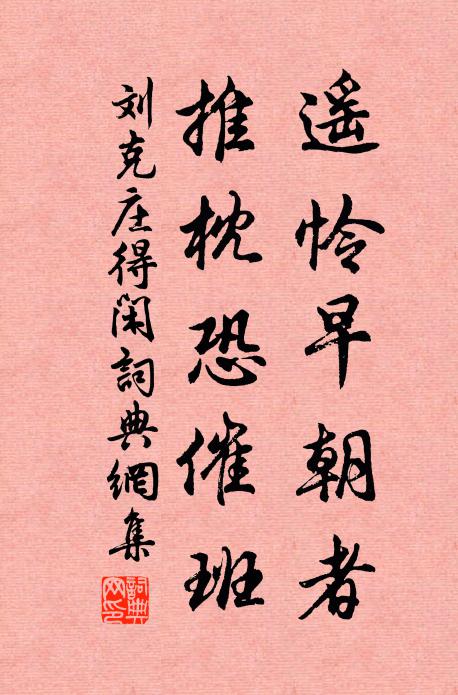 遥怜早朝者
推枕恐催班
刘克庄得闲詞典網集
詞典网印